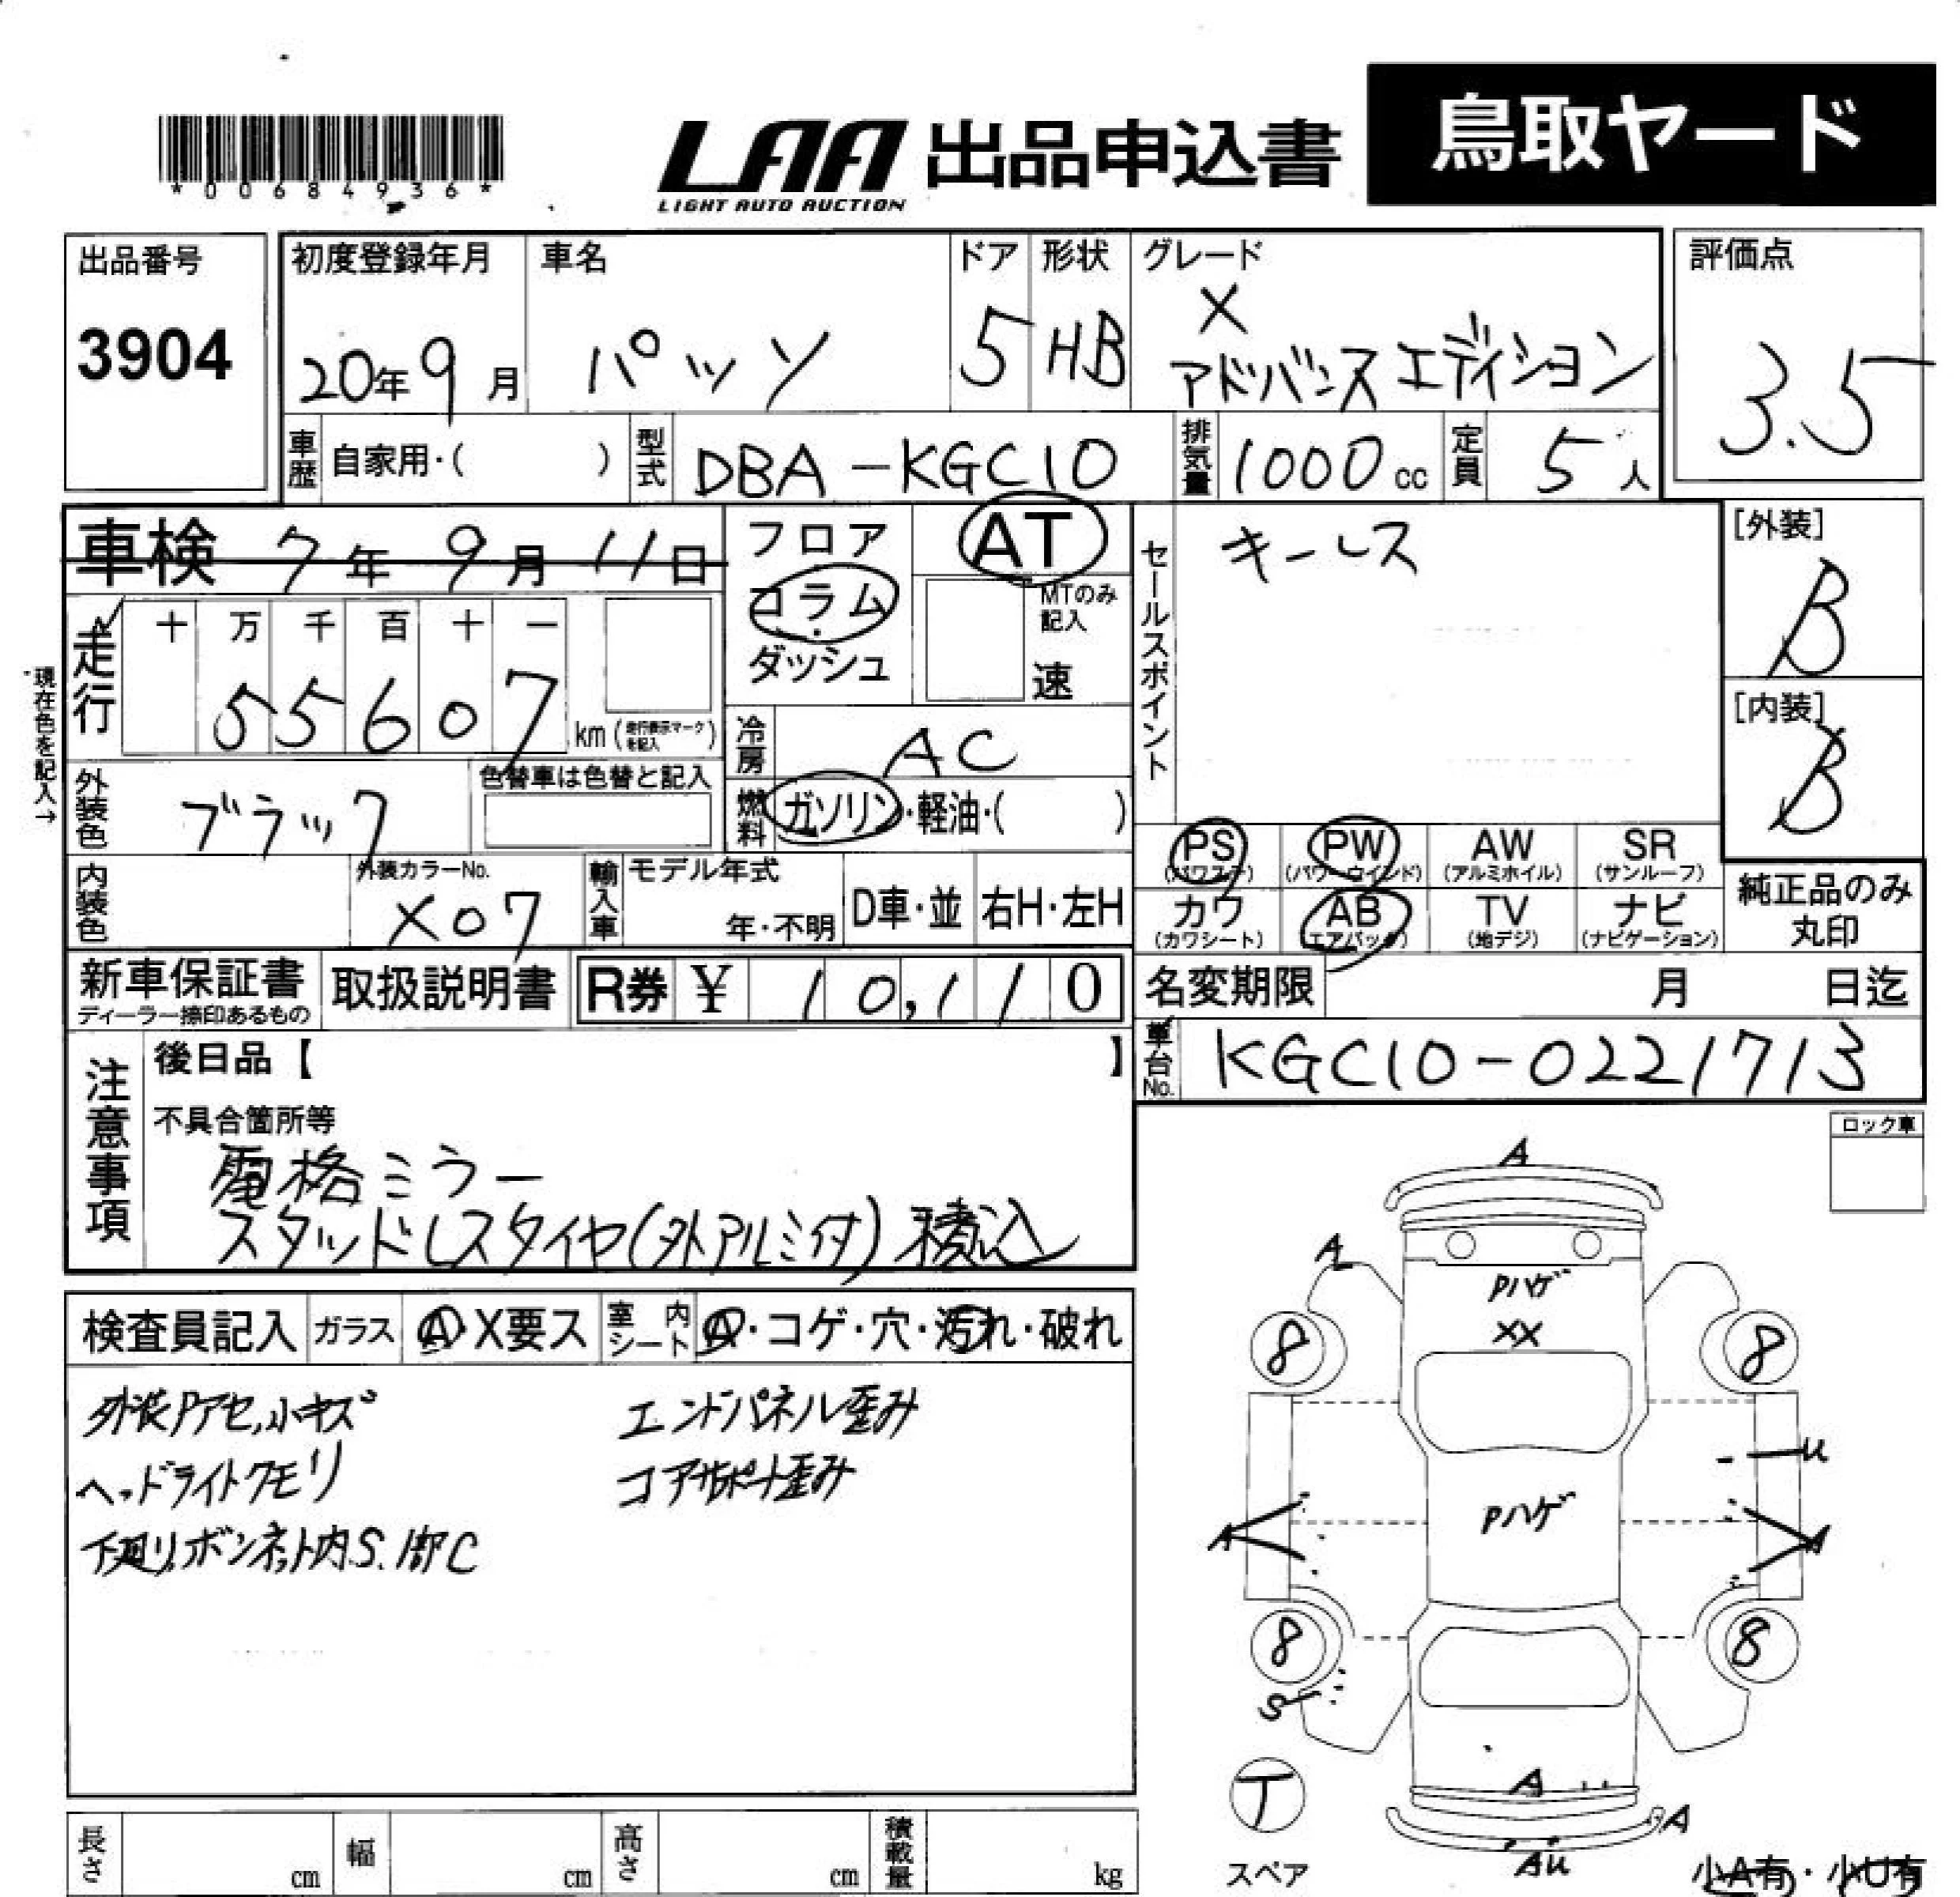 *00684936*
LAA LIGHT AUTO AUCTION 出品申込書
鳥取ヤード
出品番号
3904
初度登録年月
20年9月
車名
パッソ
ドア
5
形状
HB
グレード
X
アドバンスエディション
評価点
3.5
車歴 自家用・( )
型式 DBA-KGC10
排気量 1000cc
定員 5人
車検 7年9月11日
走行
十 万 千 百 十 一
55607
km(走行表示マークを記入)
現在色を記入→
フロア
コラム
ダッシュ
AT
MTのみ記入
速
冷房 AC
燃料 ガソリン・軽油・( )
セールスポイント
キーレス
[外装]
B
[内装]
B
外装色 ブラック
色替車は色替と記入
内装色
外装カラーNo.
X07
輸入車
モデル年式
年・不明
D車・並
右H・左H
PS (パワステ)
PW (パワーウインド)
AW (アルミホイル)
SR (サンルーフ)
カワ (カワシート)
AB (エアバック)
TV (地デジ)
ナビ (ナビゲーション)
純正品のみ
丸印
新車保証書
ディーラー捺印あるもの
取扱説明書
R券 ¥ 10,110
名変期限 月 日迄
車台No. KGC10-0221713
注意事項
後日品【 】
不具合箇所等
電格ミラー
スタッドレスタイヤ(外アルミ付)積込
ロック車
検査員記入
ガラス A・X要ス
室内シート A・コゲ・穴・汚れ・破れ
外装Pアセ,小キズ
ヘッドライトクモリ
下廻り,ボンネット内S.1部C
エンドパネル歪み
コアサポート歪み
A
A
Pハゲ
XX
8
8
U
Pハゲ
A
A
8
8
S
A
T
A
AU
スペア
小A有・小U有
長さ cm
幅 cm
高さ cm
積載量 kg